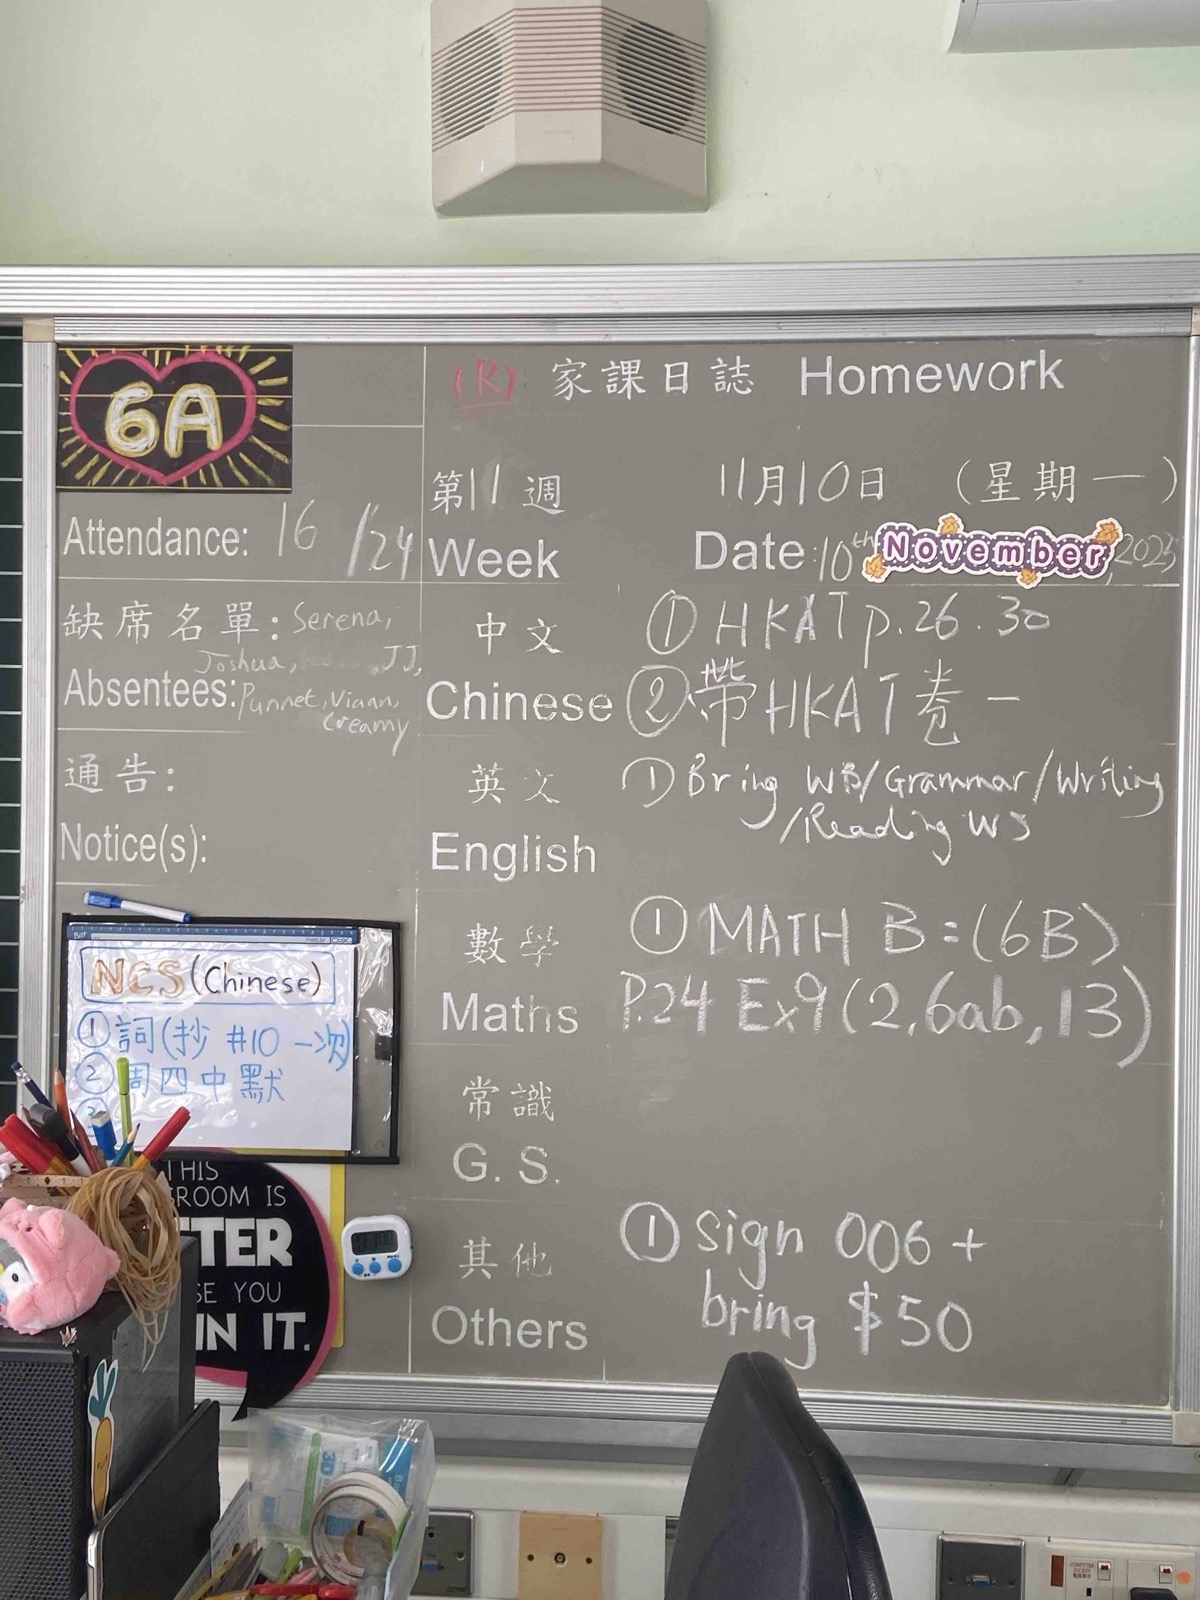 6A
(R) 家課日誌 Homework
第11週 11月10日 (星期一)
Week Date: 10th November, 2025
Attendance: 16/24
缺席名單: Serena,
Joshua, JJ,
Absentees: Punnet, Viaan,
Creamy
通告:
Notice(s):
中文 ① HKAT p.26.30
Chinese ② 帶HKAT卷一
英文 ① Bring WB/Grammar/Writing
/Reading WS
English
數學 ① MATH B:(6B)
Maths P.24 Ex9(2,6ab,13)
常識
G. S.
其他 ① sign 006 +
Others bring $50
NCS (Chinese)
① 詞(抄 #10 一次)
② 周四中默
THIS
ROOM IS
TTER
SE YOU
IN IT.